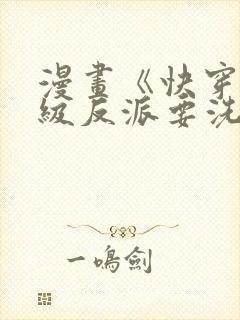 漫畫《快穿
級反派要洗
一鳴劍